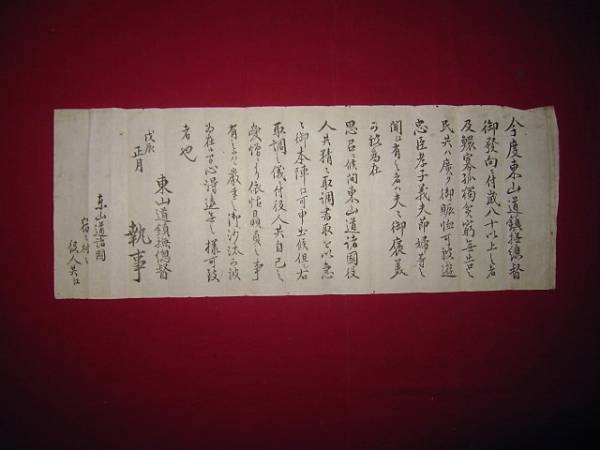 今度東山道鎮撫總督
御發向ニ付歳八十以上之者
及鰥寡孤獨貧窮無告之
民共ハ廣ク御賑恤可被遊
忠臣孝子義夫節婦等之
聞江有之者ハ夫々御褒美
可被為在
思召ニ候間東山道諸国役
人共精々取調書取を以急
々御本陣江可申出候但シ右
取調之儀ニ付役人共自己之
愛憎ニより依怙贔屓之事
有之ニハ嚴重之御沙汰可被
為在候ニ付心得違無之様可致
者也
戊辰
正月
東山道鎮撫總督
執事
東山道諸国
宿々村々
役人共江